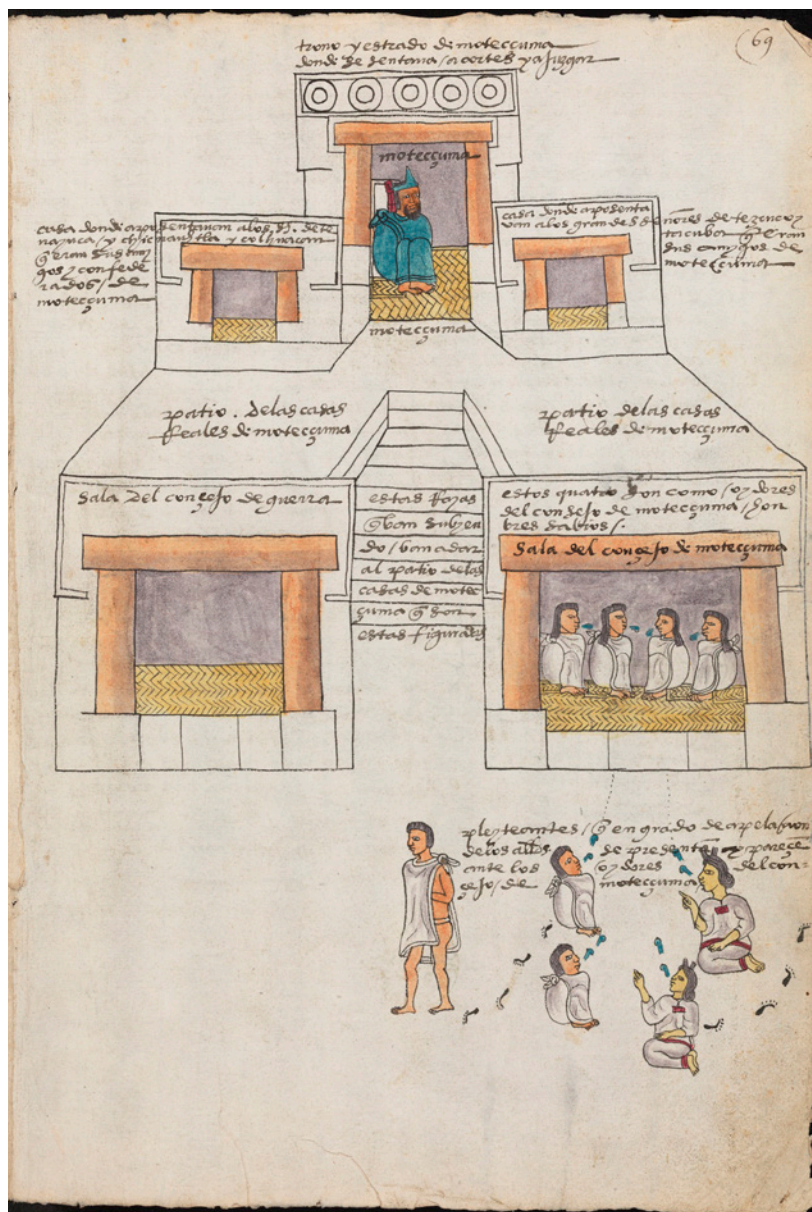 69
trono y estrado de motecçuma
donde se sentava / a cortes y a juzgar
motecçuma
casa donde aposentavan a los s. de te
nayuca / y chicnauhtla y colhuacan
q eran sus ami
gos y confede
rados / de
motecçuma
casa donde aposenta
van a los grandes señores de tezcuco y
tacuba q eran
sus amigos de
motecçuma
motecçuma
patio . de las casas
Reales de motecçuma
patio de las casas
Reales de motecçuma
Sala del consejo de guerra
estas Rayas
q van subyen
do / van a dar
al patio de las
casas de motec
çuma q son
estas figuradas
estos quatro son como / oydores
del consejo de motecçuma / hon
bres sabios /.
Sala del consejo de motecçuma
pleyteantes / q en grado de apelaçion
de los alldes se presentã y pareçẽ
ante los oydores del con
sejo / de motecçuma